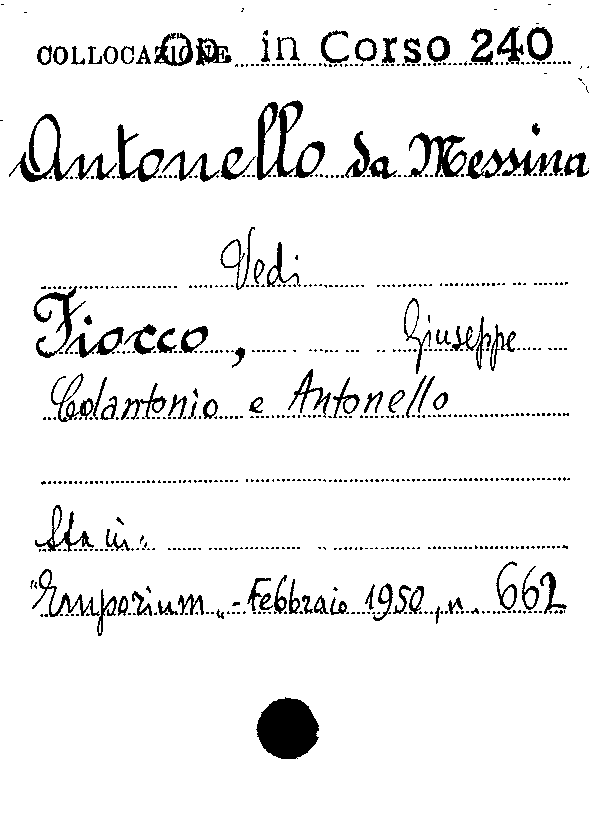 COLLOCAZIONE Op. in Corso 240
Antonello da Messina
Vedi
Fiocco, Giuseppe
Colantonio e Antonello
Sta in:
"Emporium„ - Febbraio 1950, n. 662